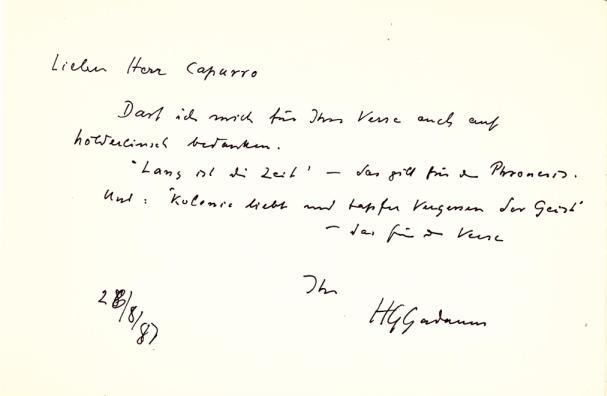 Lieber Herr Capurro
Darf ich mich für Ihre Verse auch auf
hölderlinisch bedanken.
"Lang ist die Zeit" – das gilt für die Phronesis.
Und: "Kolonie liebt und tapfer Vergessen der Geist"
– das für die Verse
Ihr
HGGadamer
28/8/87